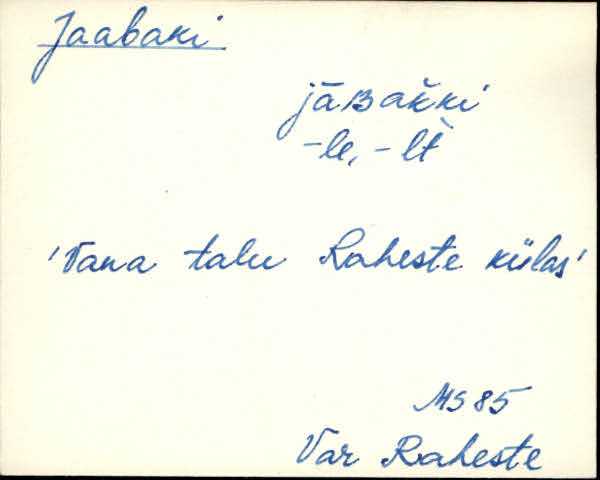 Jaabaki
jāʙak̆ki
-le, -lt̆
'Vana talu Raheste külas'
MS 85
Var Raheste